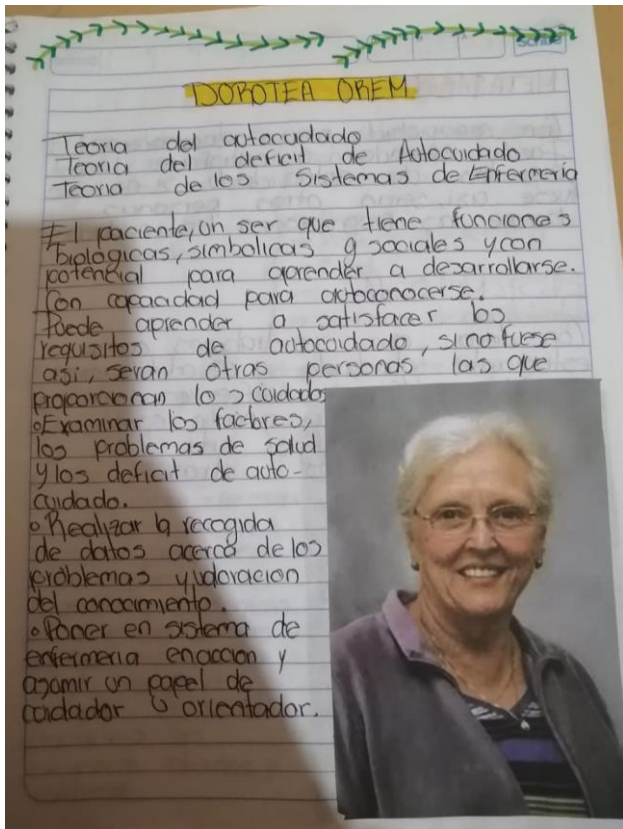 Scribe
DOROTEA OREM
Teoria del autocudado
Teoria del deficit de Autocuidado
Teoria de los Sistemas de Enfermeria
El paciente, un ser que tiene funciones
biologicas, simbolicas y sociales y con
potencial para aprender a desarrollarse.
Con capacidad para autoconocerse.
Puede aprender a satisfacer los
requisitos de autocuidado, si no fuese
asi, seran otras personas las que
proporcionan los cuidados
Examinar los factores,
los problemas de salud
y los deficit de auto-
cuidado.
Realizar la recogida
de datos acerca de los
problemas y valoracion
del conocimiento.
Poner en sistema de
enfermeria en accion y
asumir un papel de
cuidador u orientador.